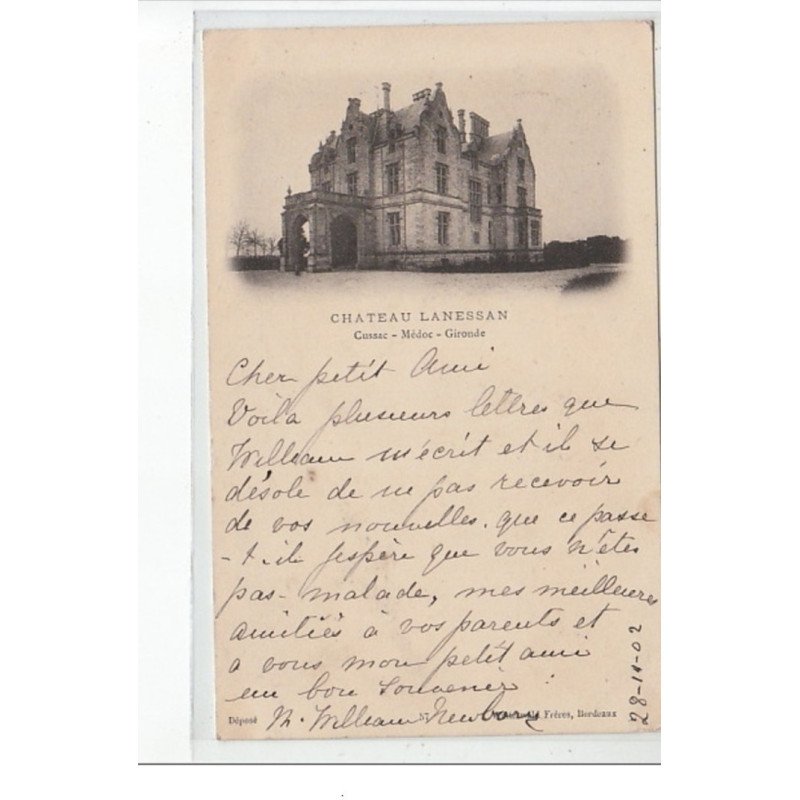 CHATEAU LANESSAN
Cussac - Médoc - Gironde
Cher petit Ami
Voilà plusieurs lettres que
William m'écrit et il se
désole de ne pas recevoir
de vos nouvelles. que ce passe
-t-il j'espère que vous n'êtes
pas malade, mes meilleures
amitiés à vos parents et
a vous mon petit ami
un bon souvenir
William
28-11-02
Déposé
Frères, Bordeaux